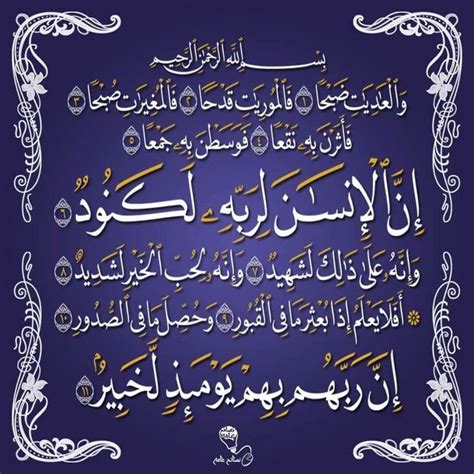 بِسْمِ اللَّهِ الرَّحْمَٰنِ الرَّحِيمِ
وَالْعَٰدِيَٰتِ ضَبْحًا ١ فَالْمُورِيَٰتِ قَدْحًا ٢ فَالْمُغِيرَٰتِ صُبْحًا ٣
فَأَثَرْنَ بِهِۦ نَقْعًا ٤ فَوَسَطْنَ بِهِۦ جَمْعًا ٥
إِنَّ الْإِنسَٰنَ لِرَبِّهِۦ لَكَنُودٌ ٦
وَإِنَّهُۥ عَلَىٰ ذَٰلِكَ لَشَهِيدٌ ٧ وَإِنَّهُۥ لِحُبِّ الْخَيْرِ لَشَدِيدٌ ٨
۞ أَفَلَا يَعْلَمُ إِذَا بُعْثِرَ مَا فِي الْقُبُورِ ٩ وَحُصِّلَ مَا فِي الصُّدُورِ ١٠
إِنَّ رَبَّهُم بِهِمْ يَوْمَئِذٍ لَّخَبِيرٌۢ ١١